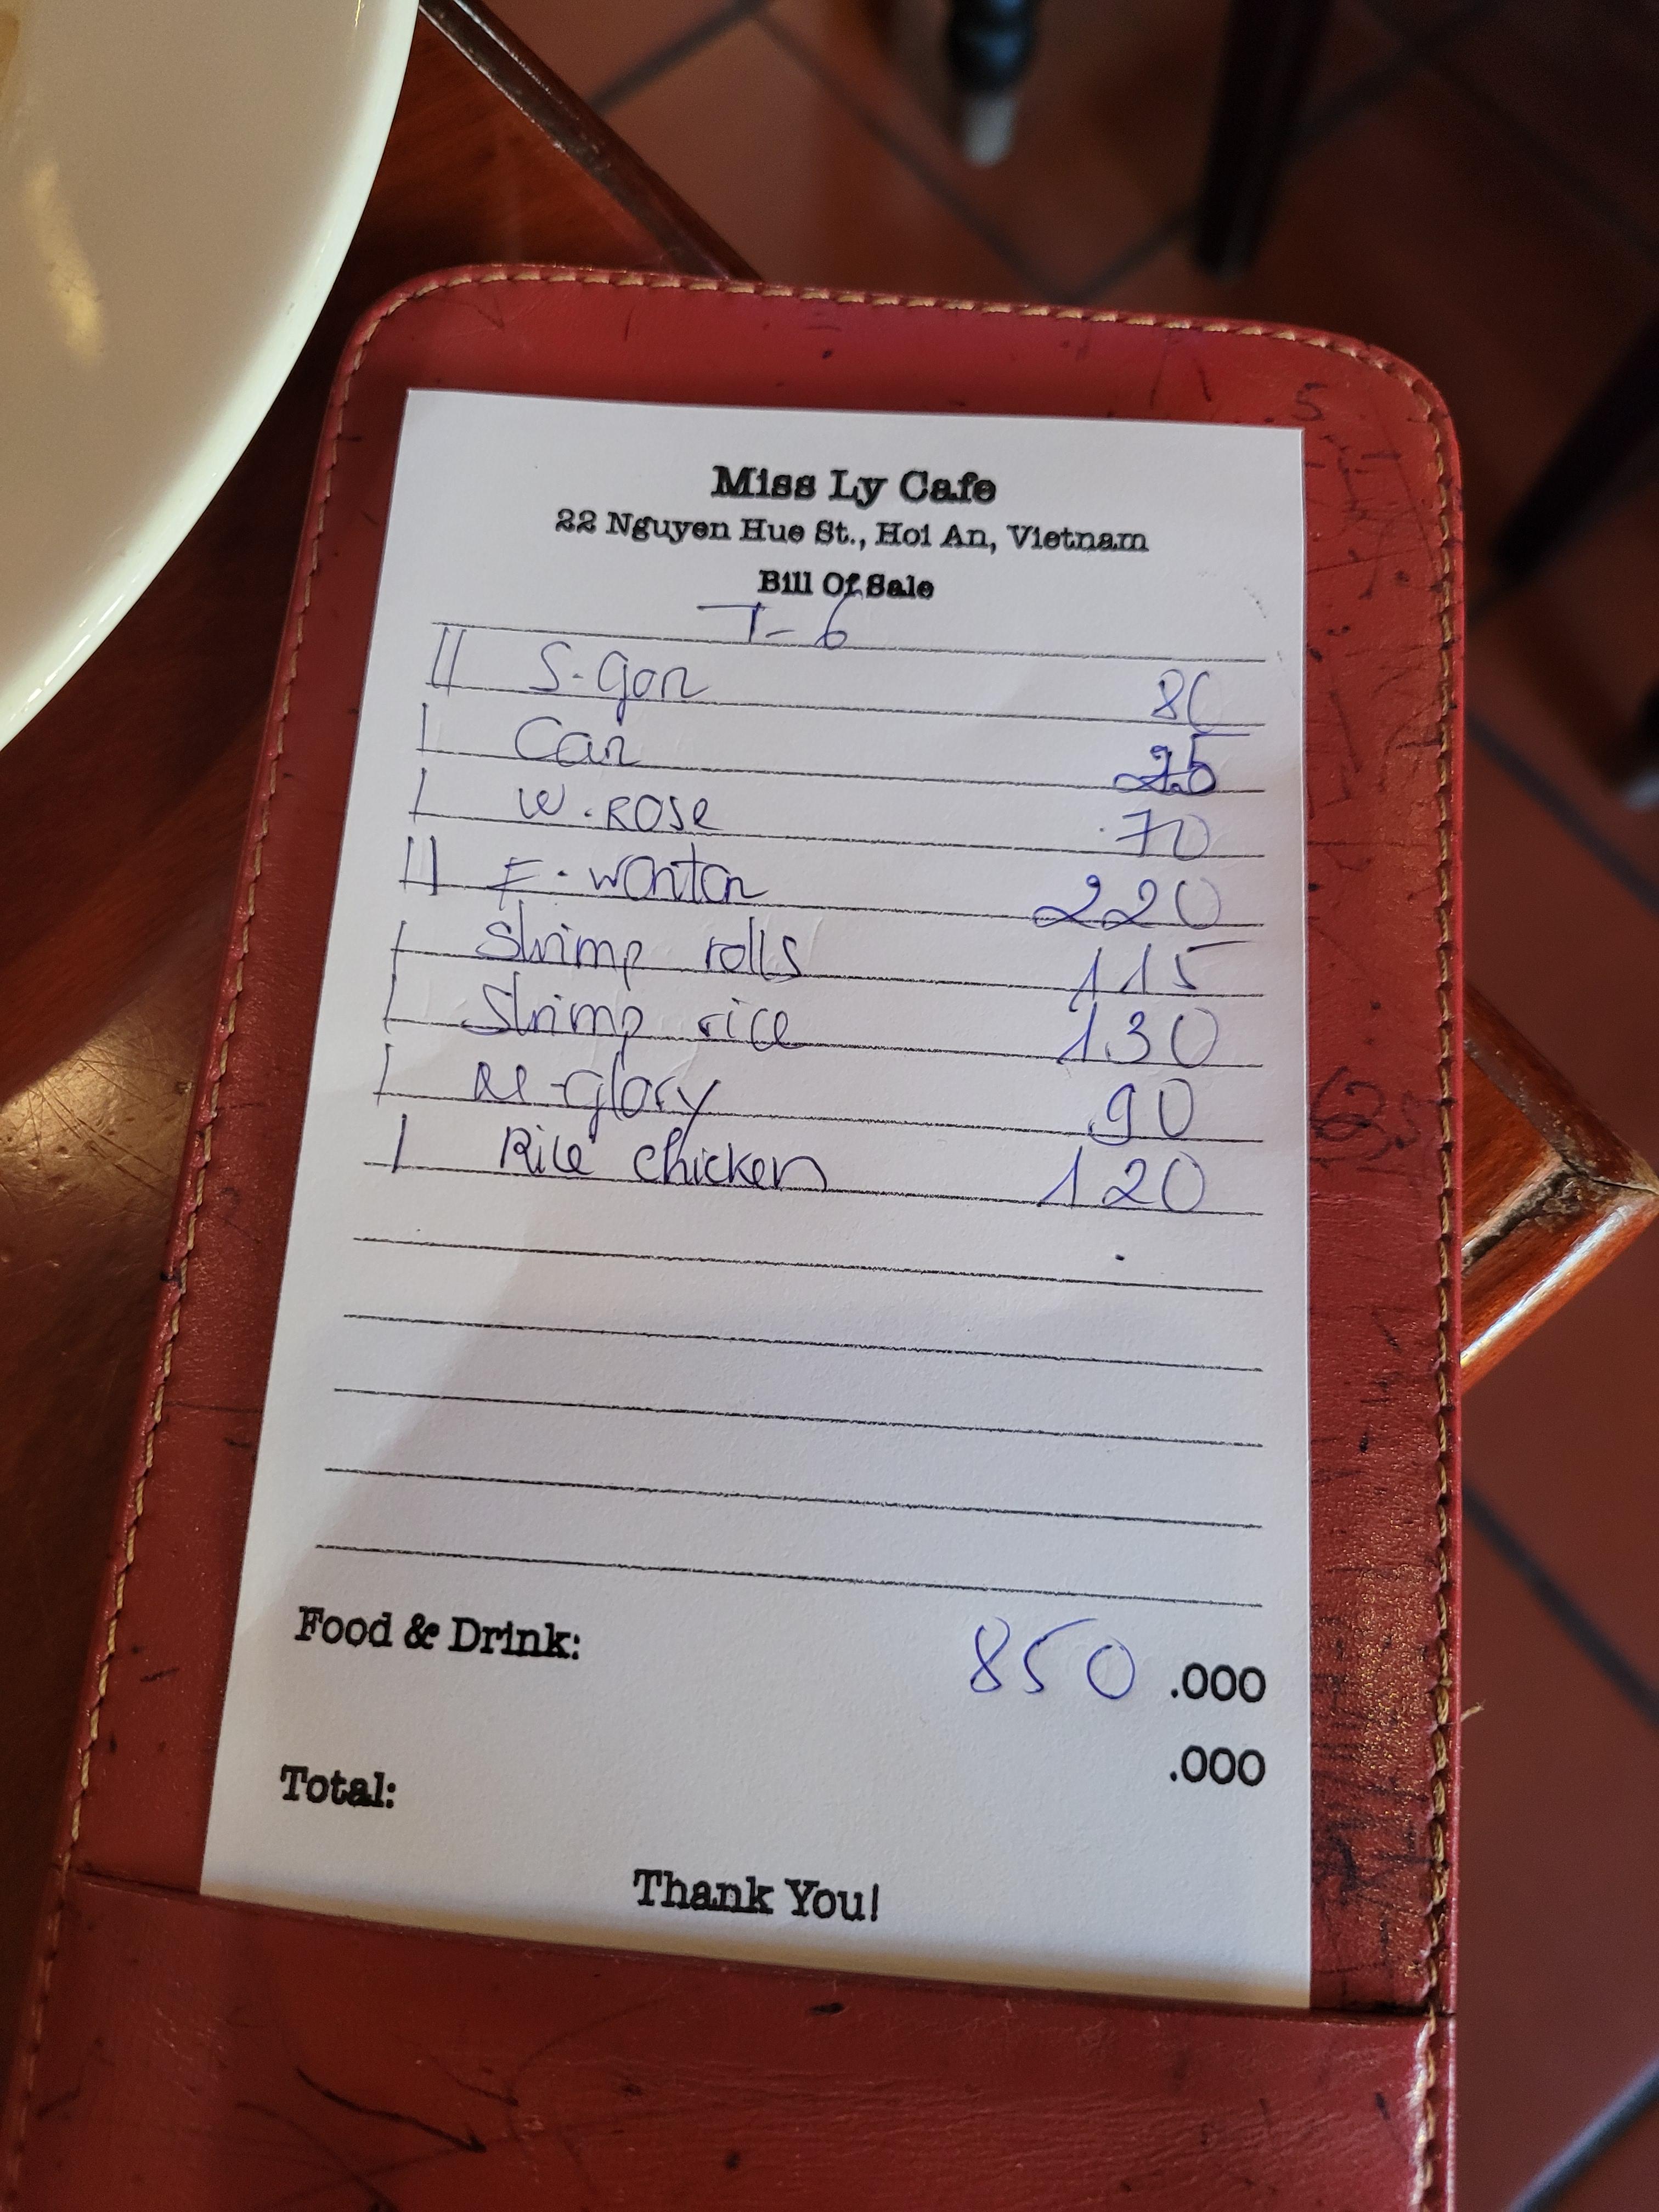 Miss Ly Cafe
22 Nguyen Hue St., Hoi An, Vietnam
Bill Of Sale
T-6
|| S.gon 80
| Can 25
| W.ROSE 70
|| F.wonton 220
| Shrimp rolls 115
| Shrimp rice 130
| M-glory 90
| Rice chicken 120
Food & Drink: 850 .000
.000
Total:
Thank You!